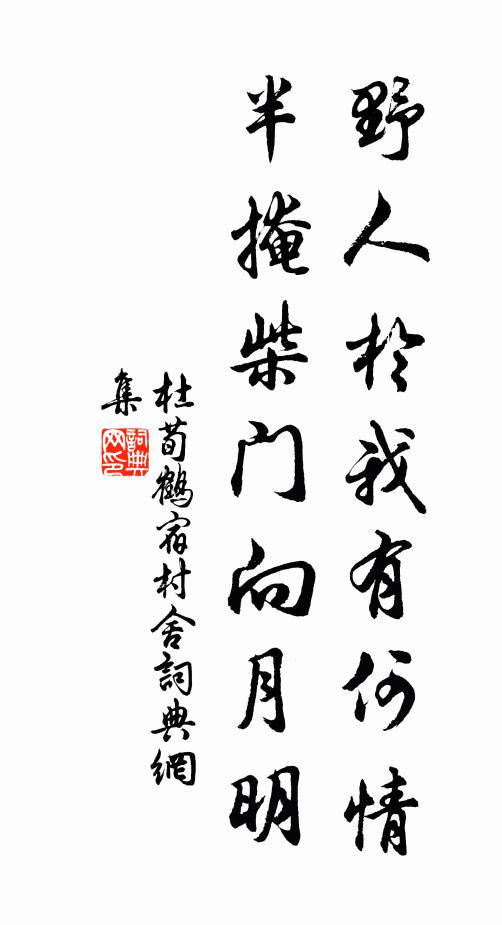 野人於我有何情
半掩柴门向月明
杜荀鶴宿村舍詞典網
集
詞典
网印